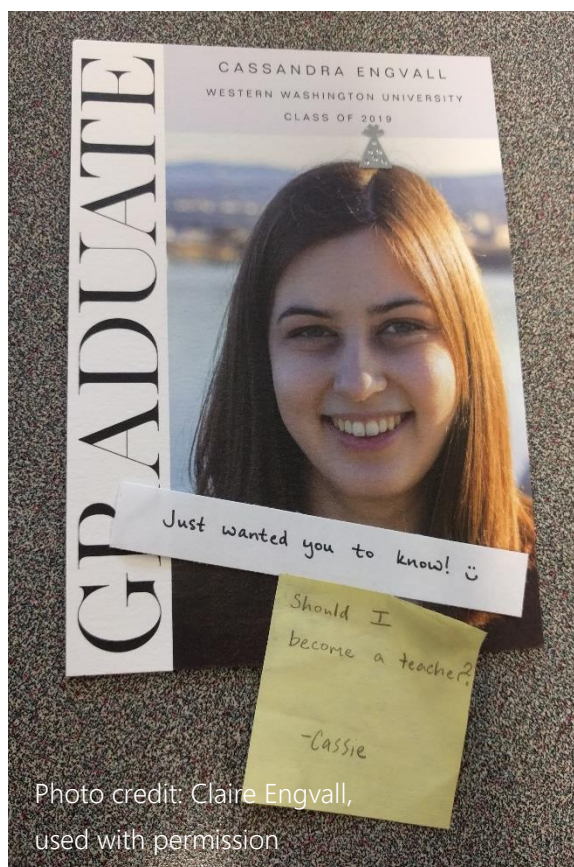 GRADUATE
CASSANDRA ENGVALL
WESTERN WASHINGTON UNIVERSITY
CLASS OF 2019
Just wanted you to know! :)
Should I
become a teacher?
-Cassie
Photo credit: Claire Engvall,
used with permission